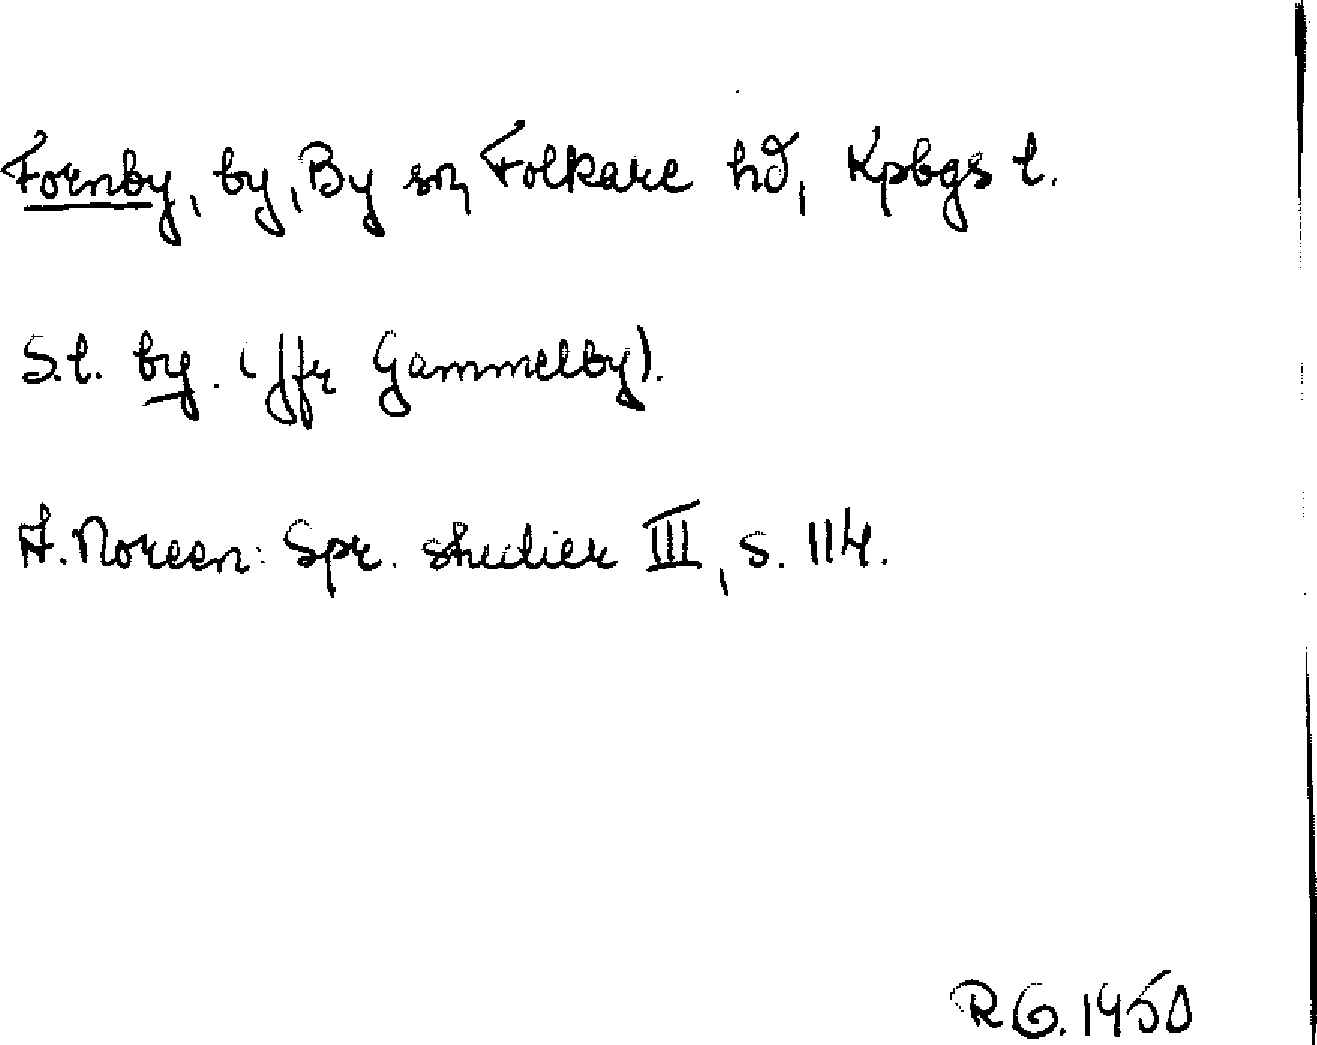 Fornby, by, By sn, Folkare hd, Kpbgs l.
S.l. by. (Jfr Gammelby).
A. Noreen: Spr. studier III, s. 114.
RG. 1950